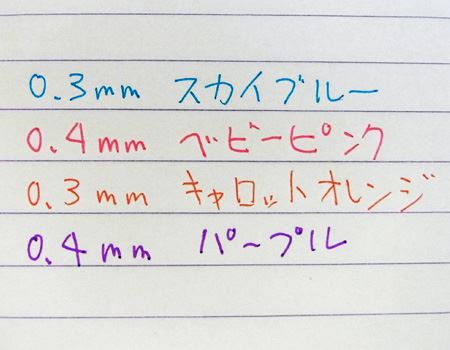 0.3mm スカイブルー
0.4mm ベビーピンク
0.3mm キャロットオレンジ
0.4mm パープル